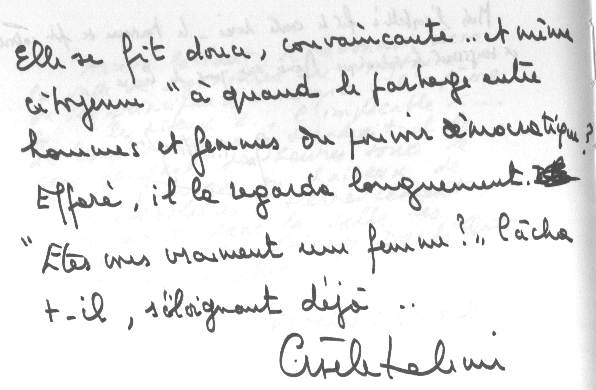 Elle se fit douce, convaincante .. et même
citoyenne " à quand le partage entre
hommes et femmes du pouvoir démocratique ?
Effaré, il la regarda longuement.
" Etes vous vraiment une femme ? " lâcha
t-il, s'éloignant déjà ..
Gisèle Halimi